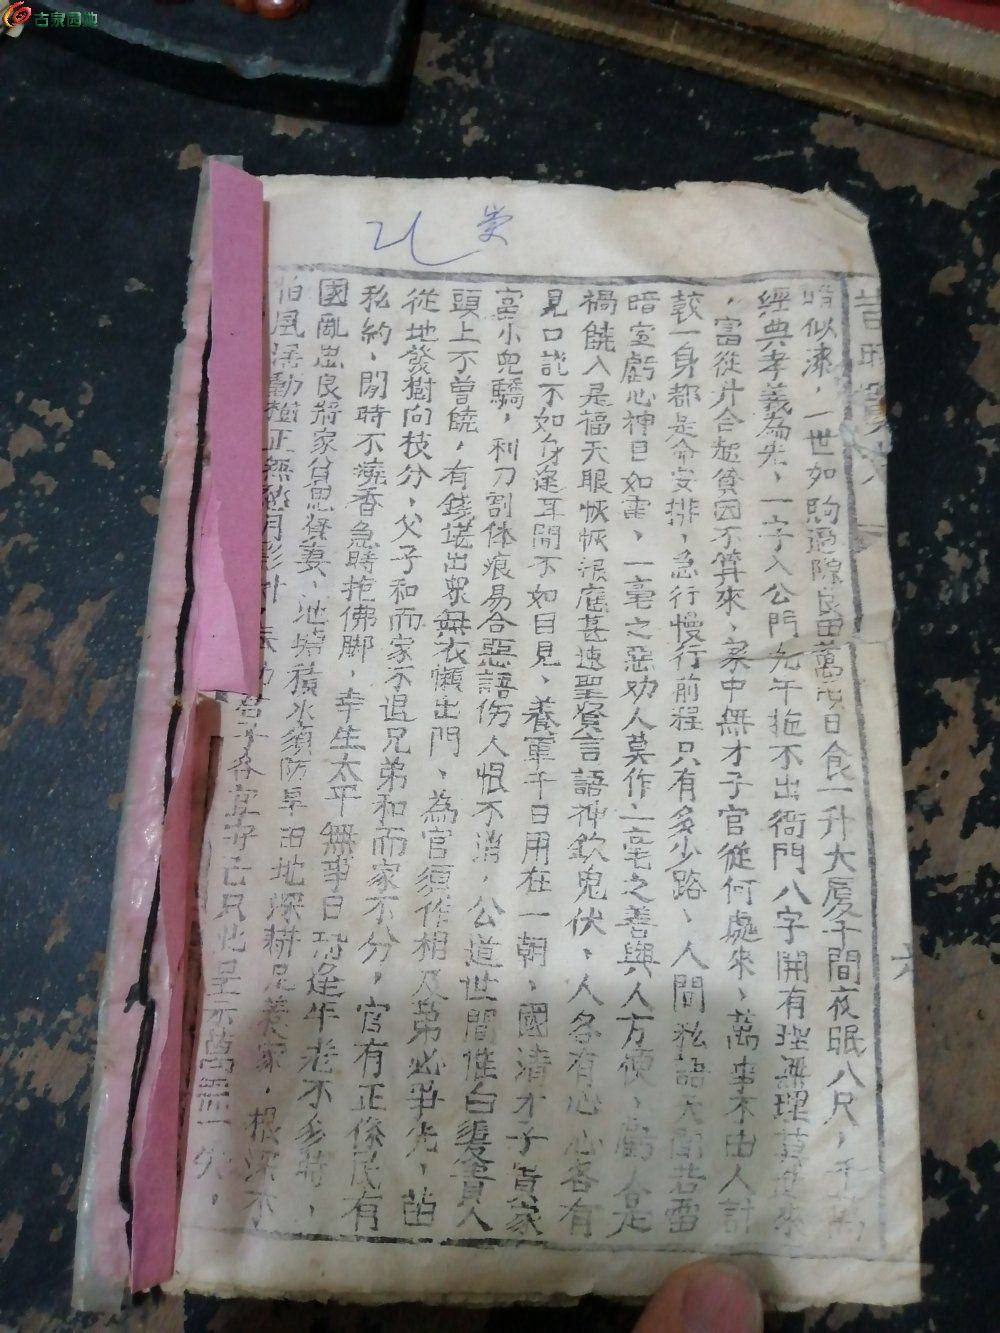 古泉园地
昔時賢文
六
暗似漆，一世如駒過隙良田萬頃日食一升大厦千間夜眠八尺，千萬
經典孝義為先，一字入公門九牛拖不出衙門八字開有理無理莫進來
，富從升合起貧因不算來，家中無才子官從何處來、萬事不由人計
較一身都是命安排，急行慢行前程只有多少路、人間私語天聞若雷
暗室虧心神目如電、一毫之惡劝人莫作一毫之善與人方便，虧人是
禍饒人是福天眼恢恢報應甚速聖賢言語神欽鬼伏、人各有心心各有
見口説不如身逢耳聞不如目見、養軍千日用在一朝、國清才子貴家
富小兒驕，利刀割体痕易合惡語伤人恨不消，公道世間惟白髮貴人
頭上不曾饒，有錢堪出眾無衣懶出門、為官須作相及第必爭先，苗
從地發樹向枝分，父子和而家不退兄弟和而家不分，官有正條民有
私約、閒時不燒香急時抱佛脚，幸生太平無事日恐逢年老不多時，
國亂思良將家貧思賢妻、池塘積水須防旱田地深耕足養家，根深不
怕風搖動樹正無愁月影
君子各宜守己只此呈示萬無一失，